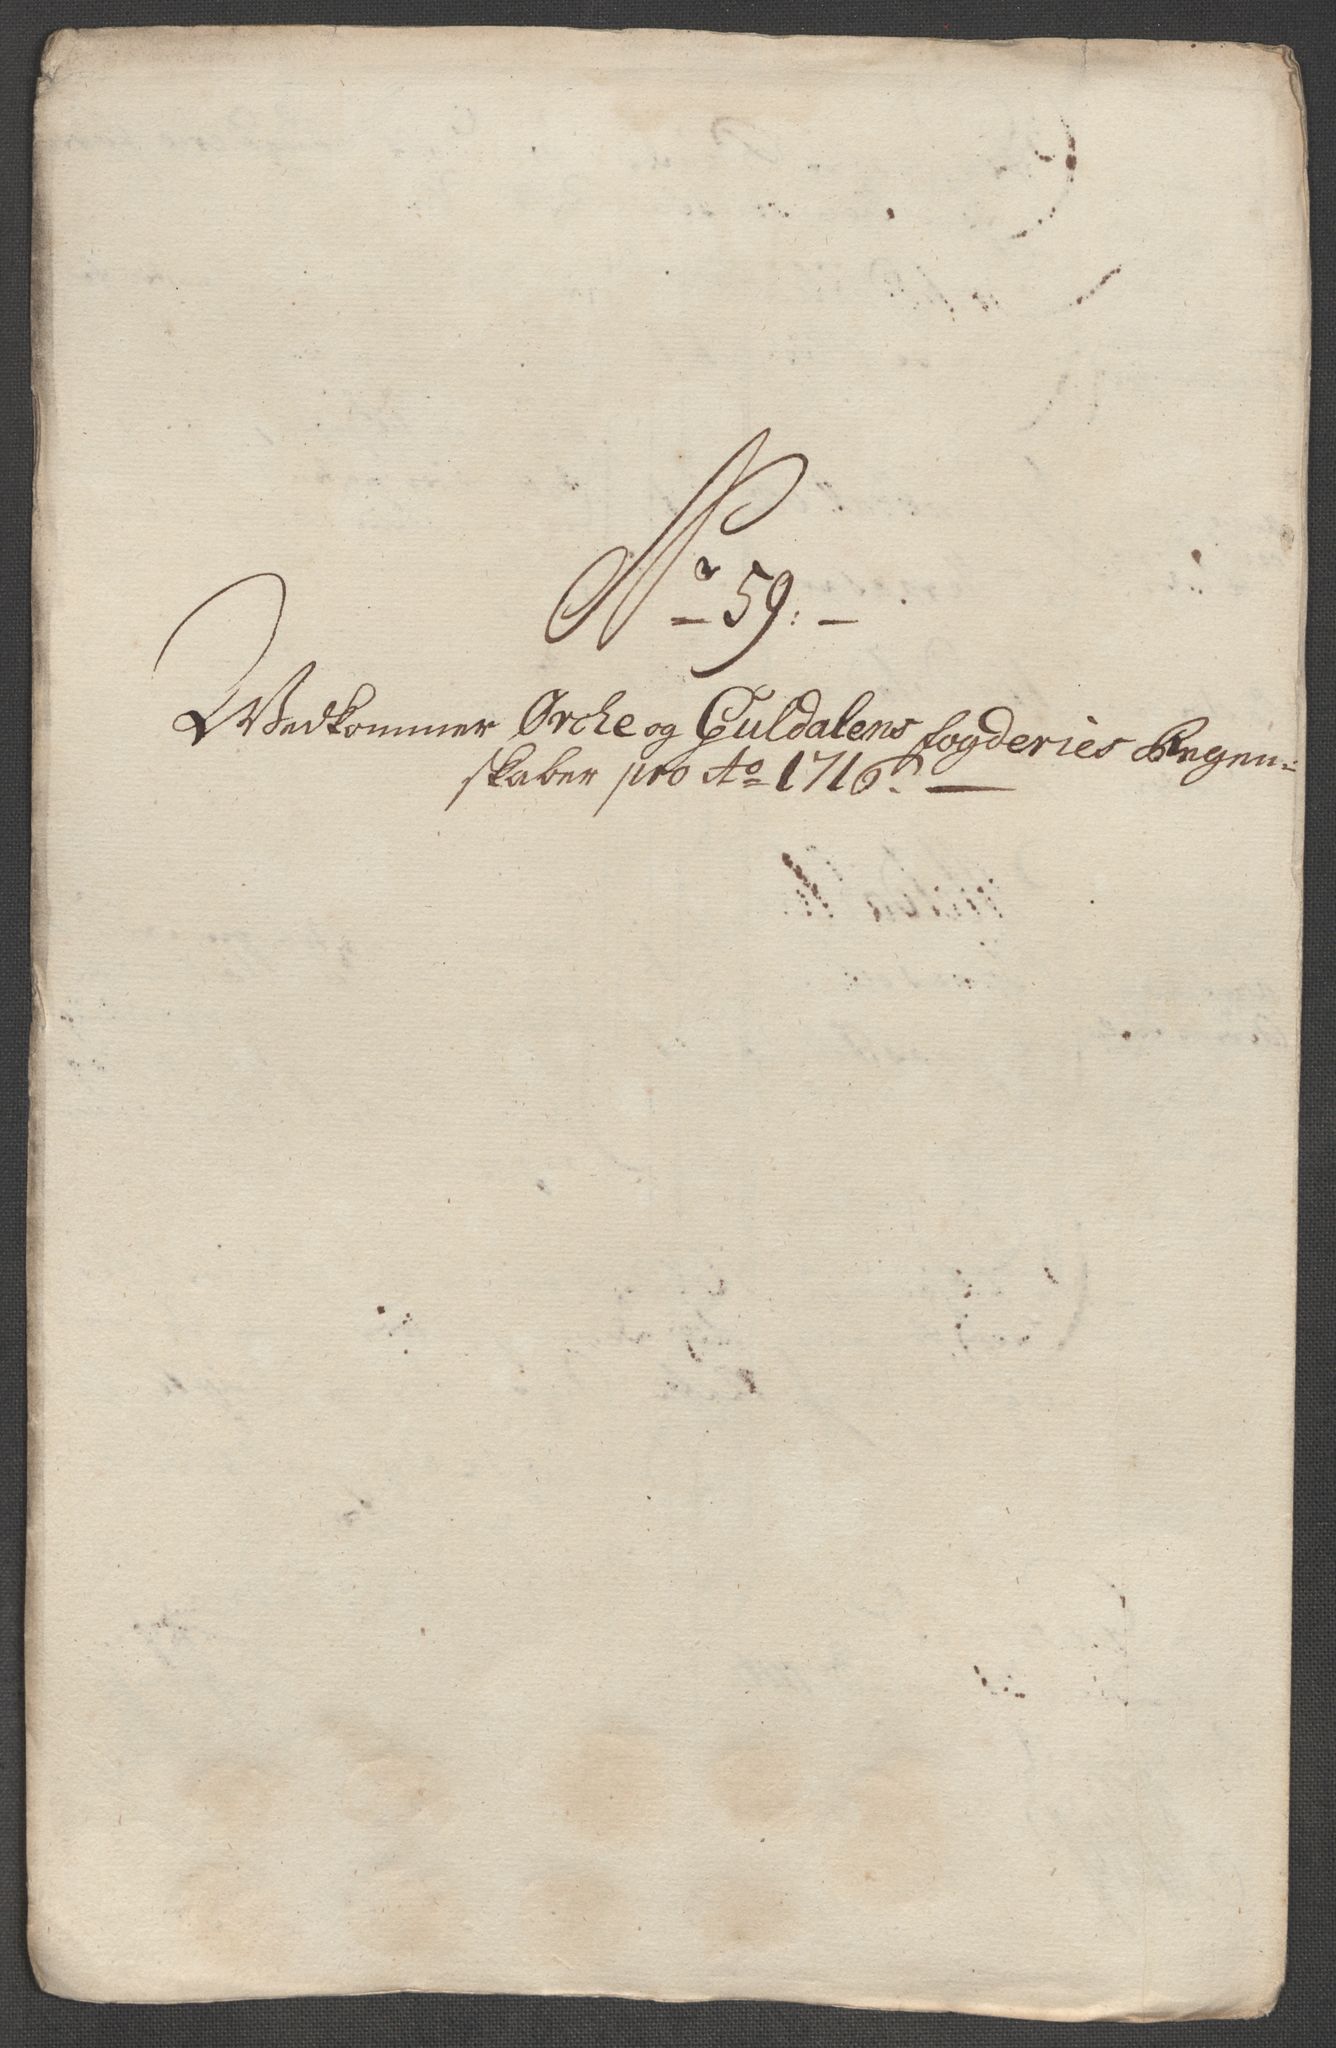 No 59:
Vedkommer Orcke og Guldalens fogderies Regen-
skaber pro Ao 1716.